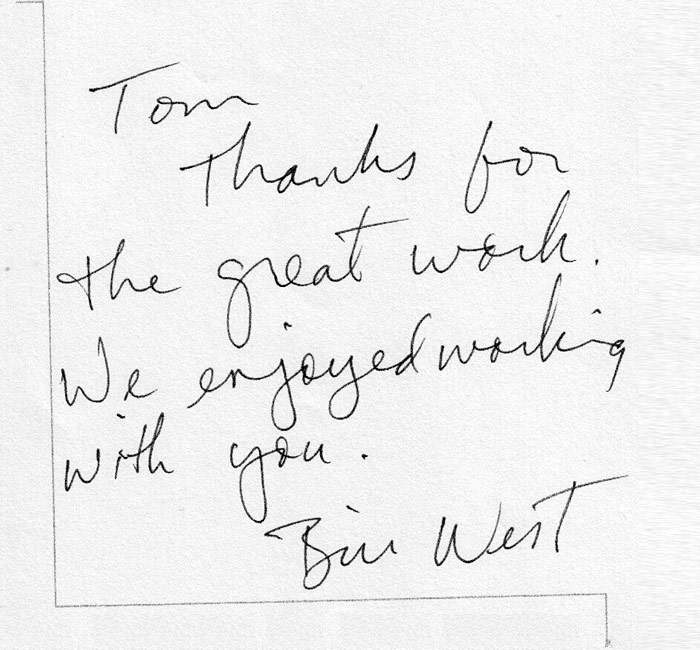 Tom
Thanks for
the great work.
We enjoyed working
with you.
Bill West